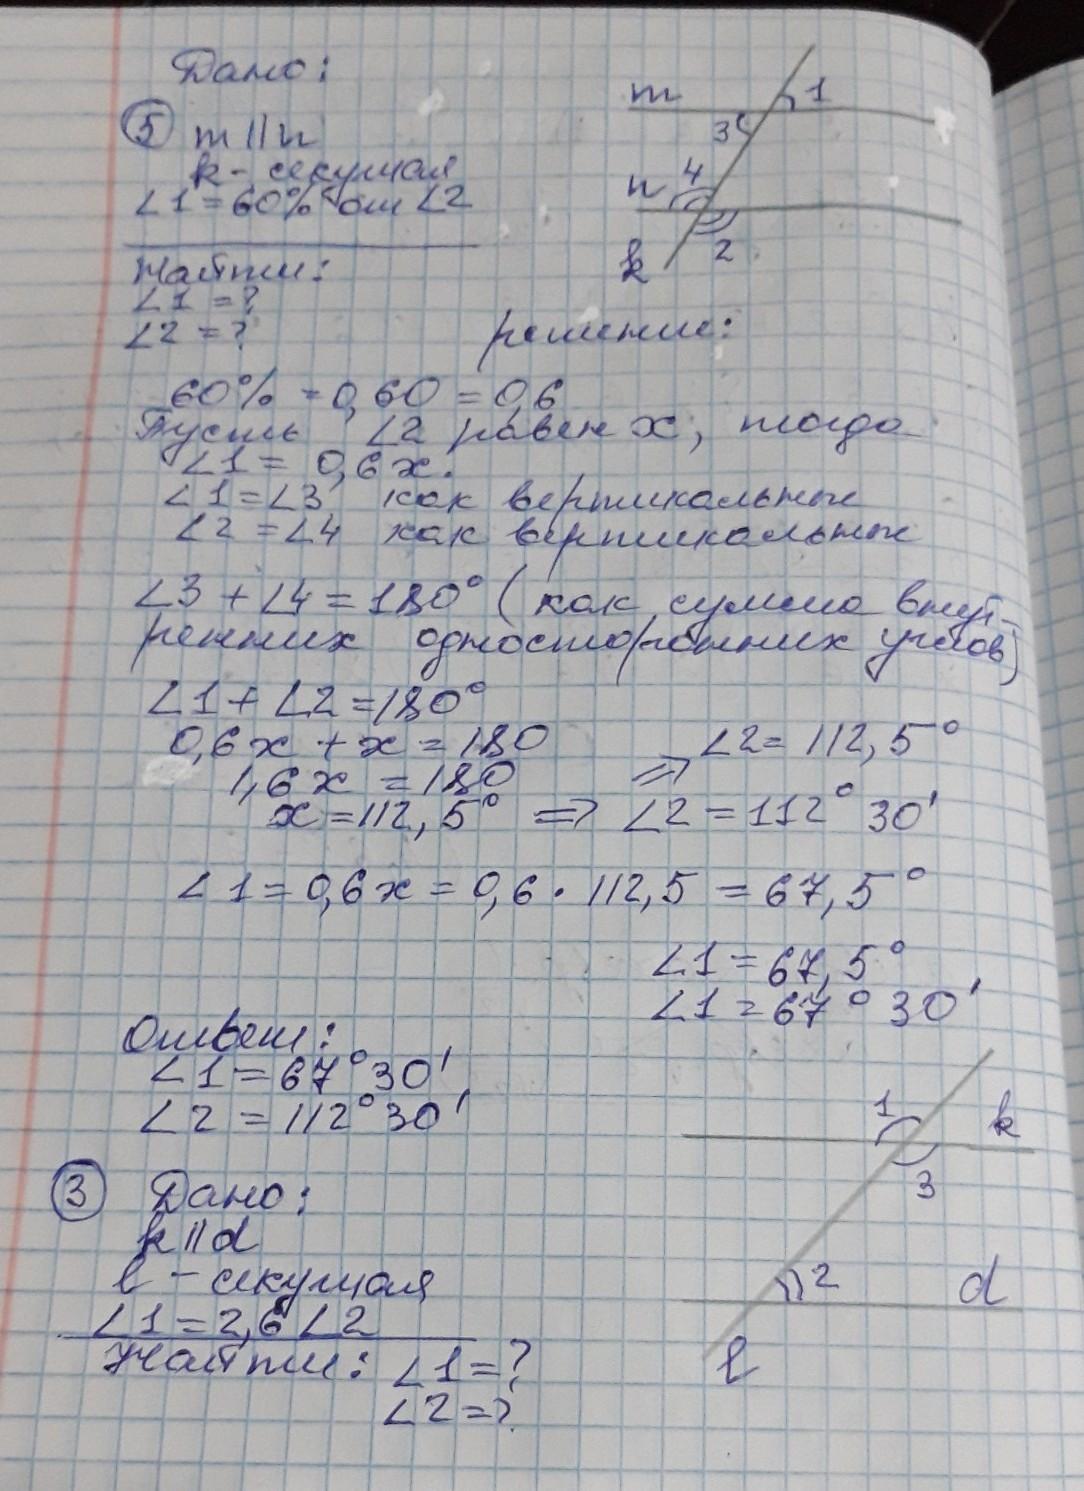 Дано:
⑤ m || n
k - секущая
∠1 = 60% от ∠2
Найти:
∠1 = ?
∠2 = ?
m
1
3
4
n
2
k
решение:
60% = 0,60 = 0,6
Пусть ∠2 равен x, тогда
∠1 = 0,6x.
∠1 = ∠3 как вертикальные
∠2 = ∠4 как вертикальные
∠3 + ∠4 = 180° (как сумма внут-
ренних односторонних углов)
∠1 + ∠2 = 180°
0,6x + x = 180
∠2 = 112,5°
1,6x = 180 =>
x = 112,5° => ∠2 = 112° 30'
∠1 = 0,6x = 0,6 · 112,5 = 67,5°
∠1 = 67,5°
∠1 = 67° 30'
Ответ:
∠1 = 67° 30'
∠2 = 112° 30'
③ Дано:
k || d
l - секущая
∠1 = 2,6 ∠2
Найти: ∠1 = ?
∠2 = ?
1
k
3
2
d
l